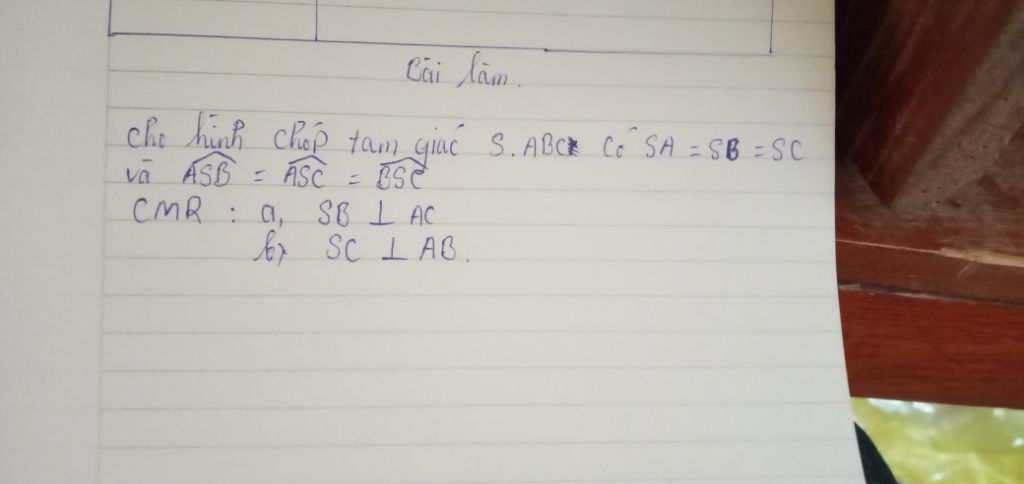 Bài làm.
Cho hình chóp tam giác S.ABC có SA = SB = SC
và ASB = ASC = BSC
CMR : a, SB ⊥ AC
b, SC ⊥ AB.